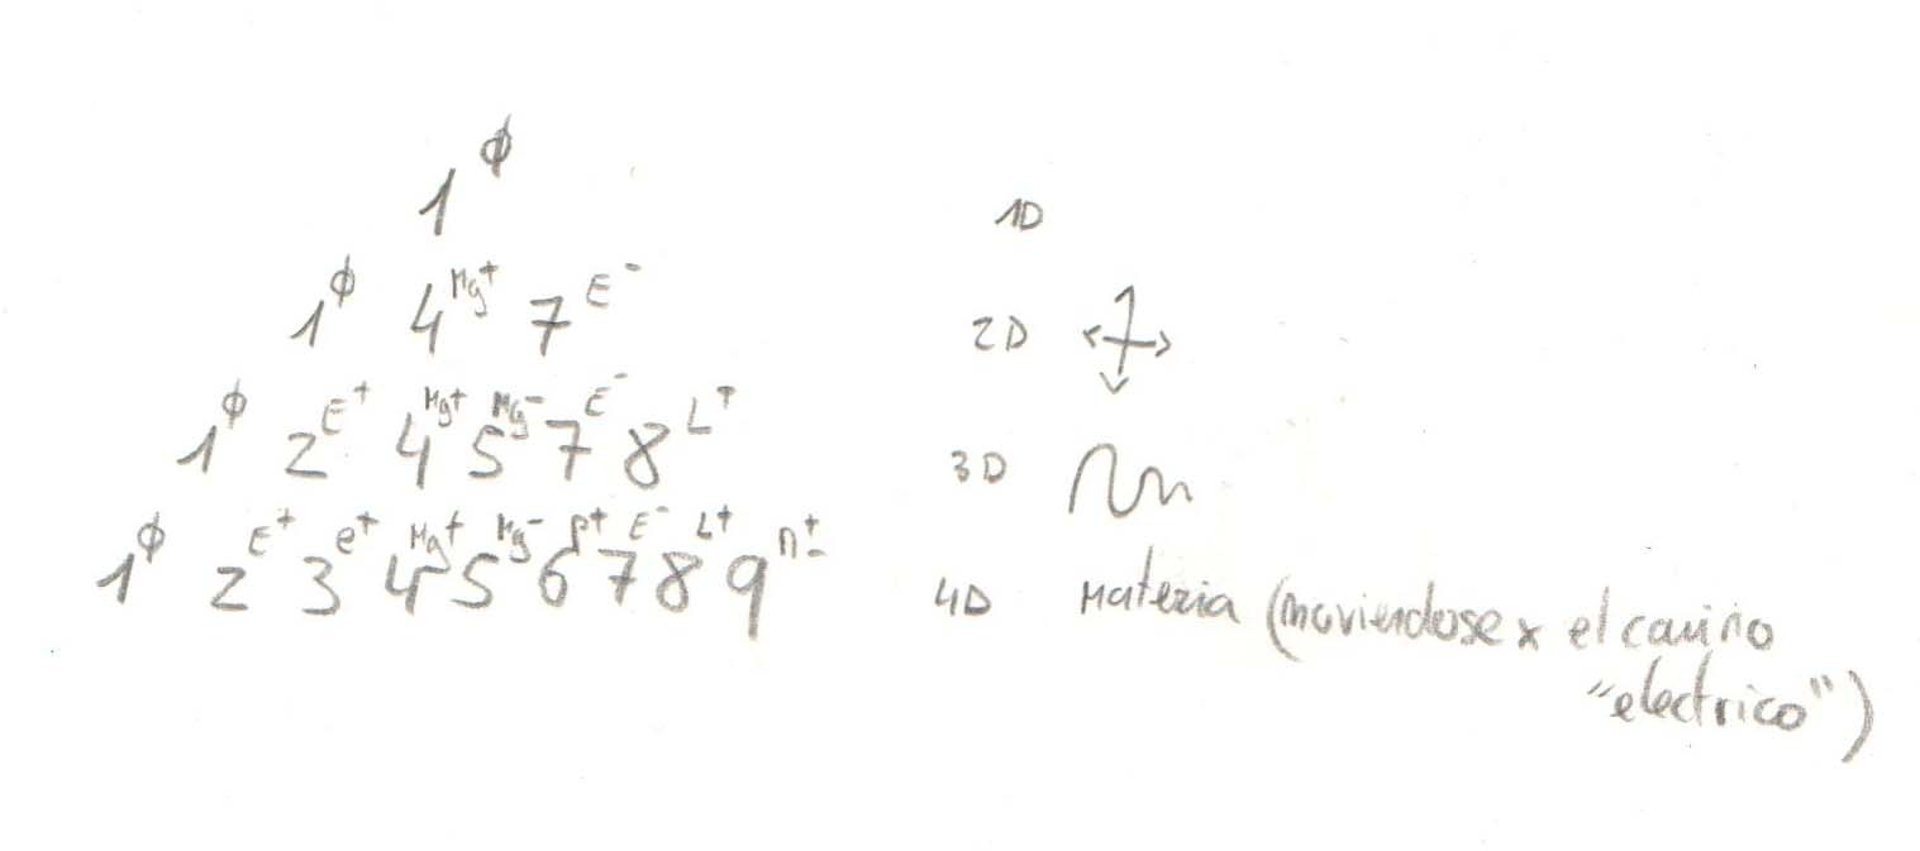 1^ϕ 1D
1^ϕ 4^Mg+ 7^E- 2D
1^ϕ 2^E+ 4^Mg+ 5^Mg- 7^E- 8^L+ 3D
1^ϕ 2^E+ 3^e+ 4^Mg+ 5^Mg- 6^p+ 7^E- 8^L+ 9^n± 4D Materia (moviendose x el camino
"electrico")